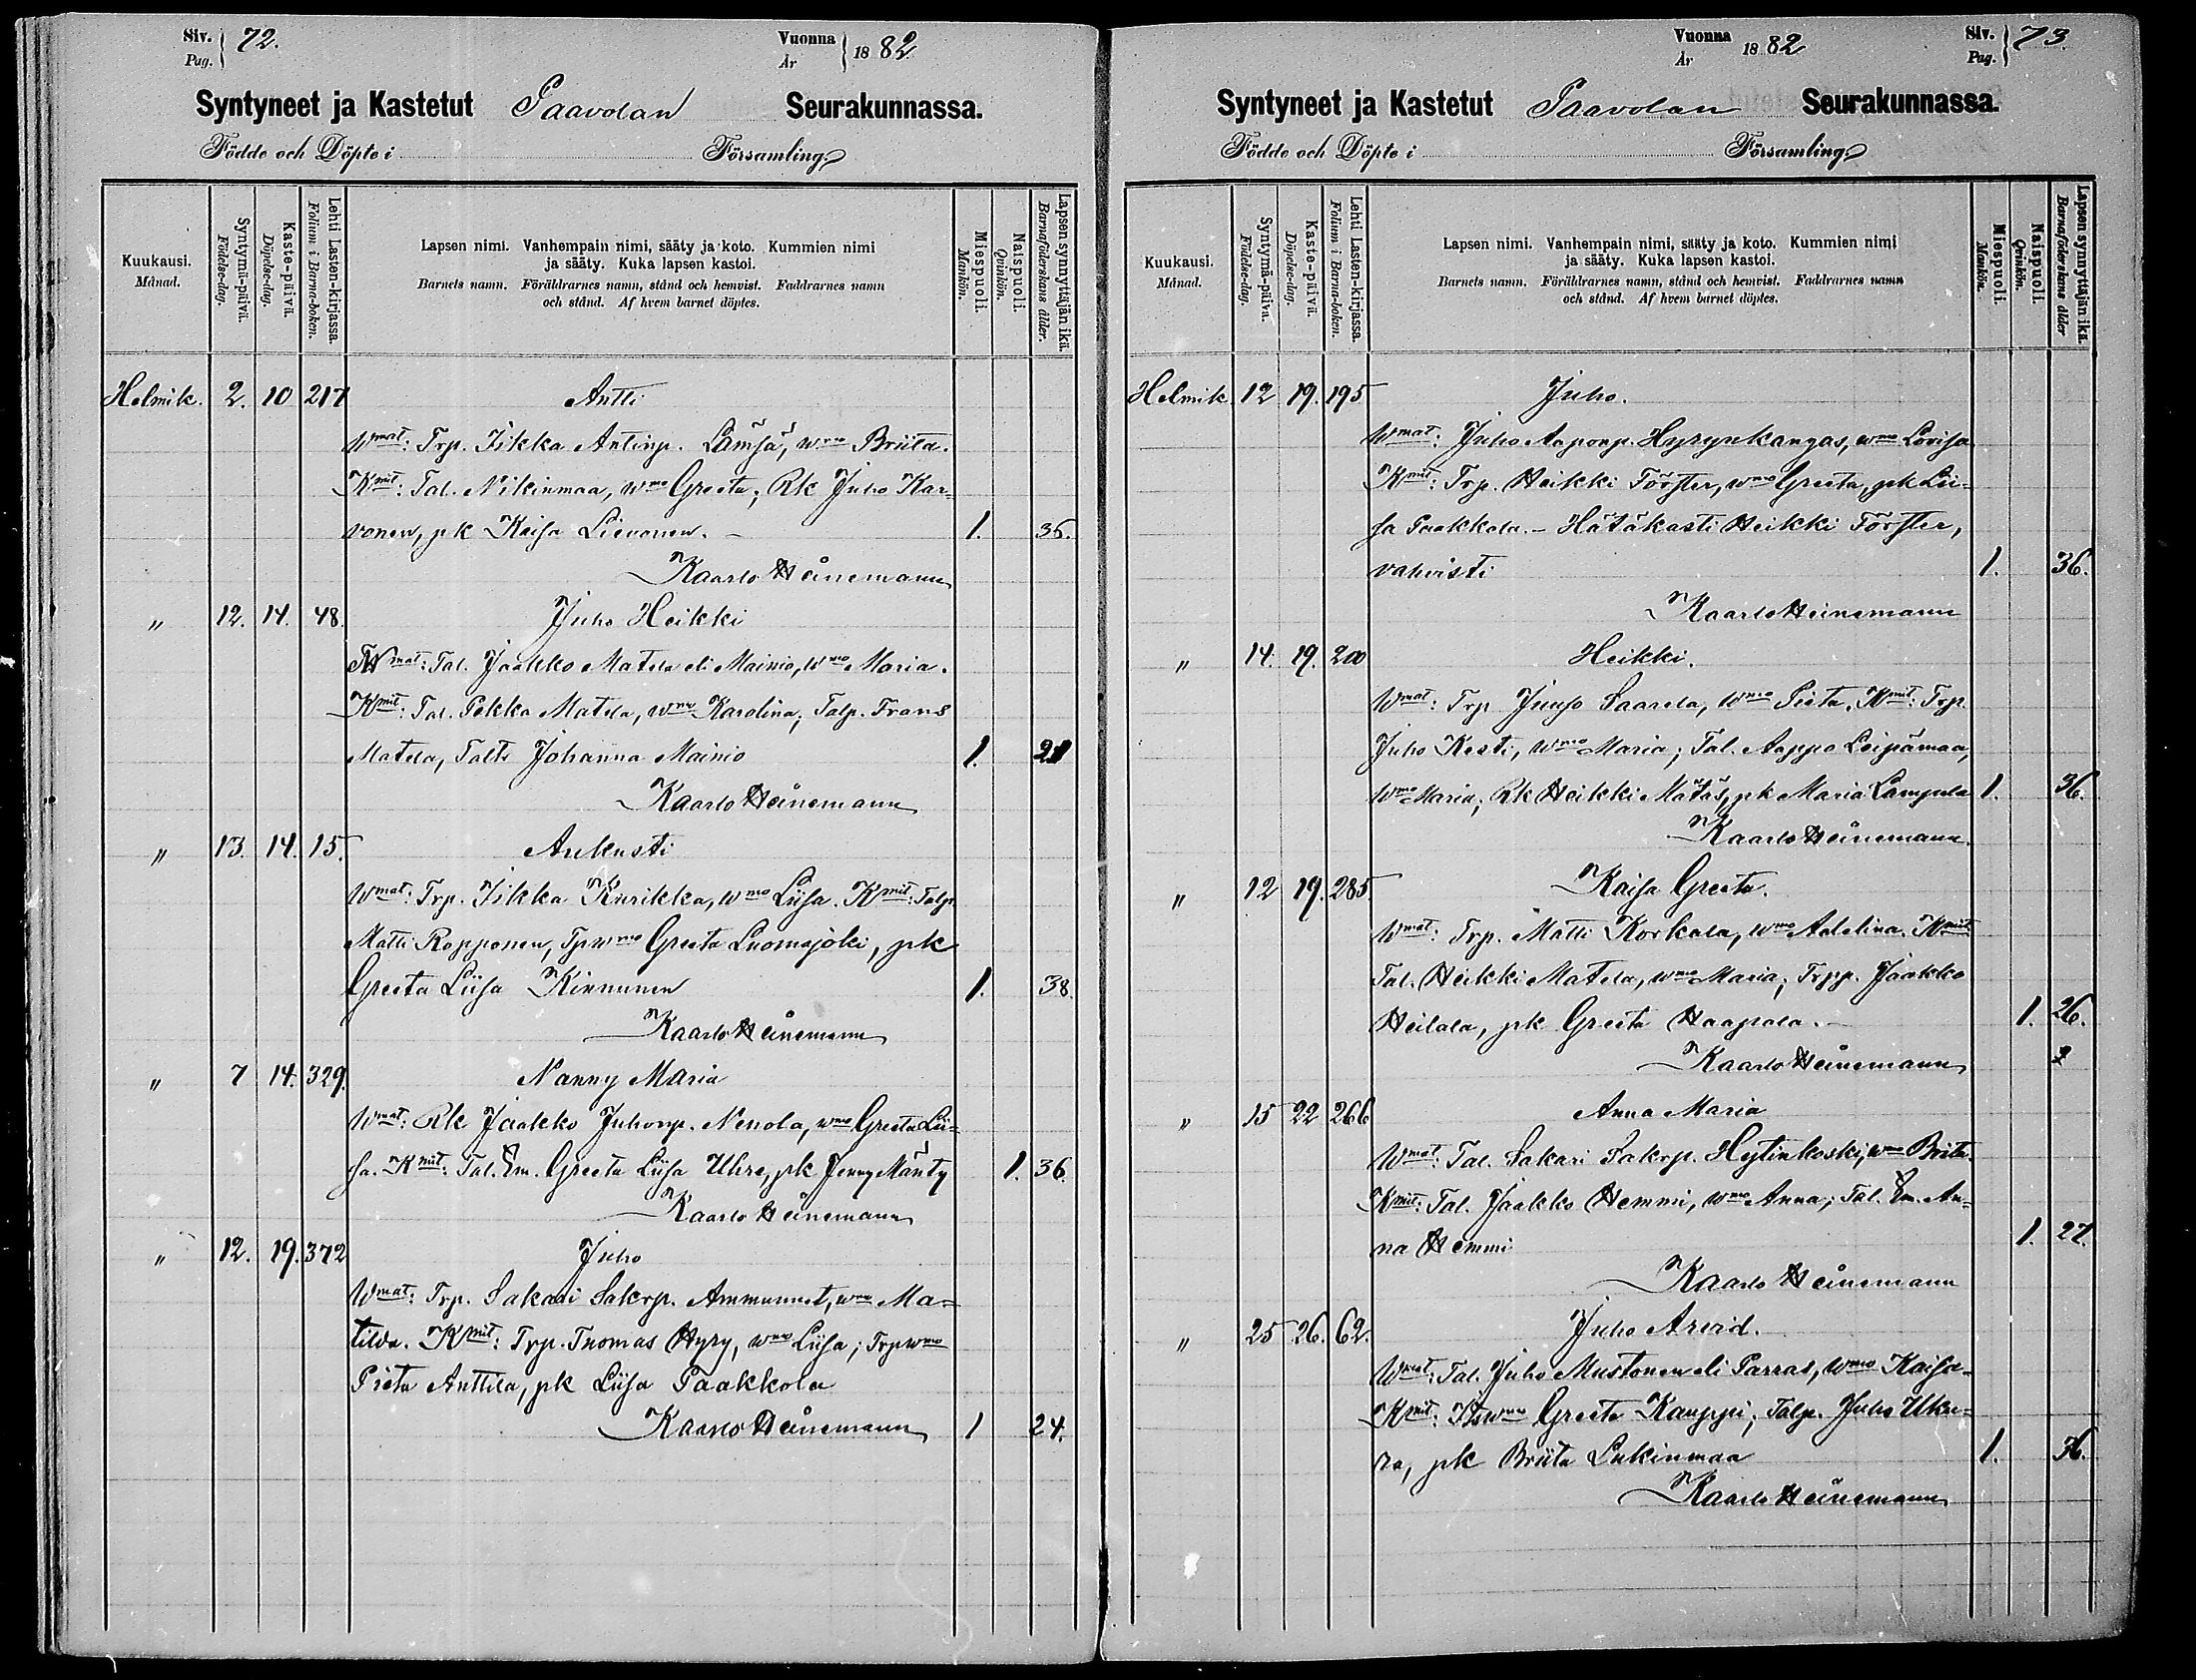 Siv. 72.
Pag.
Vuonna 1882
År
Syntyneet ja Kastetut Paavolan Seurakunnassa.
Födde och Döpte i Församling
Kuukausi.
Månad.
Syntymä-päivä.
Födelse-dag.
Kaste-päivä.
Döpelse-dag.
Lehti Lasten-kirjassa.
Folium i Barna-boken.
Lapsen nimi. Vanhempain nimi, sääty ja koto. Kummien nimi
ja sääty. Kuka lapsen kastoi.
Barnets namn. Föräldrarnes namn, stånd och hemvist. Faddrarnes namn
och stånd. Af hvem barnet döptes.
Miespuoli.
Mankön.
Naispuoli.
Qvinkön.
Lapsen synnyttäjän ikä.
Barnaföderskans ålder.
Helmik. 2. 10 217 Antti
Wmat: Trp. Iikka Antinp. Lämsä, wmo Briita.
Kmit: Tal. Nikinmaa, wmo Greeta; Rk Juho Kar-
vonen, pk Kaisa Lievonen. – 1. 35.
Kaarlo Heinemann
" 12. 14. 48. Juho Heikki
Wmat: Tal. Jaakko Matela eli Mainio, wmo Maria.
Kmit: Tal. Pekka Matela, wmo Karolina; Talp. Frans
Matela, Taltr Johanna Mainio 1. 21
Kaarlo Heinemann
" 13. 14. 15. Aukusti
Wmat: Trp. Iikka Kurikka, wmo Liisa. Kmit: Talp.
Matti Ropponen, Tpwmo Greeta Luomajoki, pk
Greeta Liisa Kinnunen 1. 38.
Kaarlo Heinemann
" 7 14. 329. Nanny Maria
Wmat: Rk Jaakko Juhonp. Nenola, wmo Greeta Lii-
sa. Kmit: Tal. Em. Greeta Liisa Uhre, pk Jenny Mänty 1. 36.
Kaarlo Heinemann
" 12. 19. 372 Juho
Wmat: Trp. Sakari Sakrp. Ammunnet, wmo Ma-
tilda. Kmit: Trp. Tuomas Hyry, wmo Liisa; Trpwmo
Pieta Anttila, pk Liisa Paakkola
Kaarlo Heinemann 1 24.
Vuonna 1882
År
Siv. 73.
Pag.
Syntyneet ja Kastetut Paavolan Seurakunnassa.
Födde och Döpte i Församling
Kuukausi.
Månad.
Syntymä-päivä.
Födelse-dag.
Kaste-päivä.
Döpelse-dag.
Lehti Lasten-kirjassa.
Folium i Barna-boken.
Lapsen nimi. Vanhempain nimi, sääty ja koto. Kummien nimi
ja sääty. Kuka lapsen kastoi.
Barnets namn. Föräldrarnes namn, stånd och hemvist. Faddrarnes namn
och stånd. Af hvem barnet döptes.
Miespuoli.
Mankön.
Naispuoli.
Qvinkön.
Lapsen synnyttäjän ikä.
Barnaföderskans ålder
Helmik 12 19. 195 Juho.
Wmat: Juho Aaponp. Hyrynkangas, wmo Lovisa
Kmit: Trp. Heikki Förster, wmo Greeta, pk Lii-
sa Paakkola. – Hätäkasti Heikki Förster,
vahvisti 1. 36.
Kaarlo Heinemann
" 14. 19. 200 Heikki.
Wmat: Trp Juuso Saarela, wmo Pieta. Kmit: Trp.
Juho Kesti, wmo Maria; Tal. Aappo Leipämaa,
wmo Maria; Rk Heikki Mätäs, pk Maria Lampela 1. 36.
Kaarlo Heinemann.
" 12 19. 285 Kaisa Greeta.
Wmat: Trp. Matti Korkala, wmo Adelina. Kmit:
Tal. Heikki Matela, wmo Maria; Trpp. Jaakko
Heilala, pk Greeta Haapala. – 1. 26.
Kaarlo Heinemann
" 15 22 266 Anna Maria
Wmat: Tal. Sakari Sakrp. Hytinkoski, wmo Briita.
Kmit: Tal. Jaakko Hemmi, wmo Anna; Tal. Em. An-
na Hemmi 1. 27.
Kaarlo Heinemann
" 25 26. 62. Juho Arvid.
Wmat: Tal. Juho Mustonen eli Parras, wmo Kaisa-
Kmit: Greeta Kauppi; Talp. Juho Uku-
ra, pk Briita Lukinmaa 1. 36.
Kaarlo Heinemann